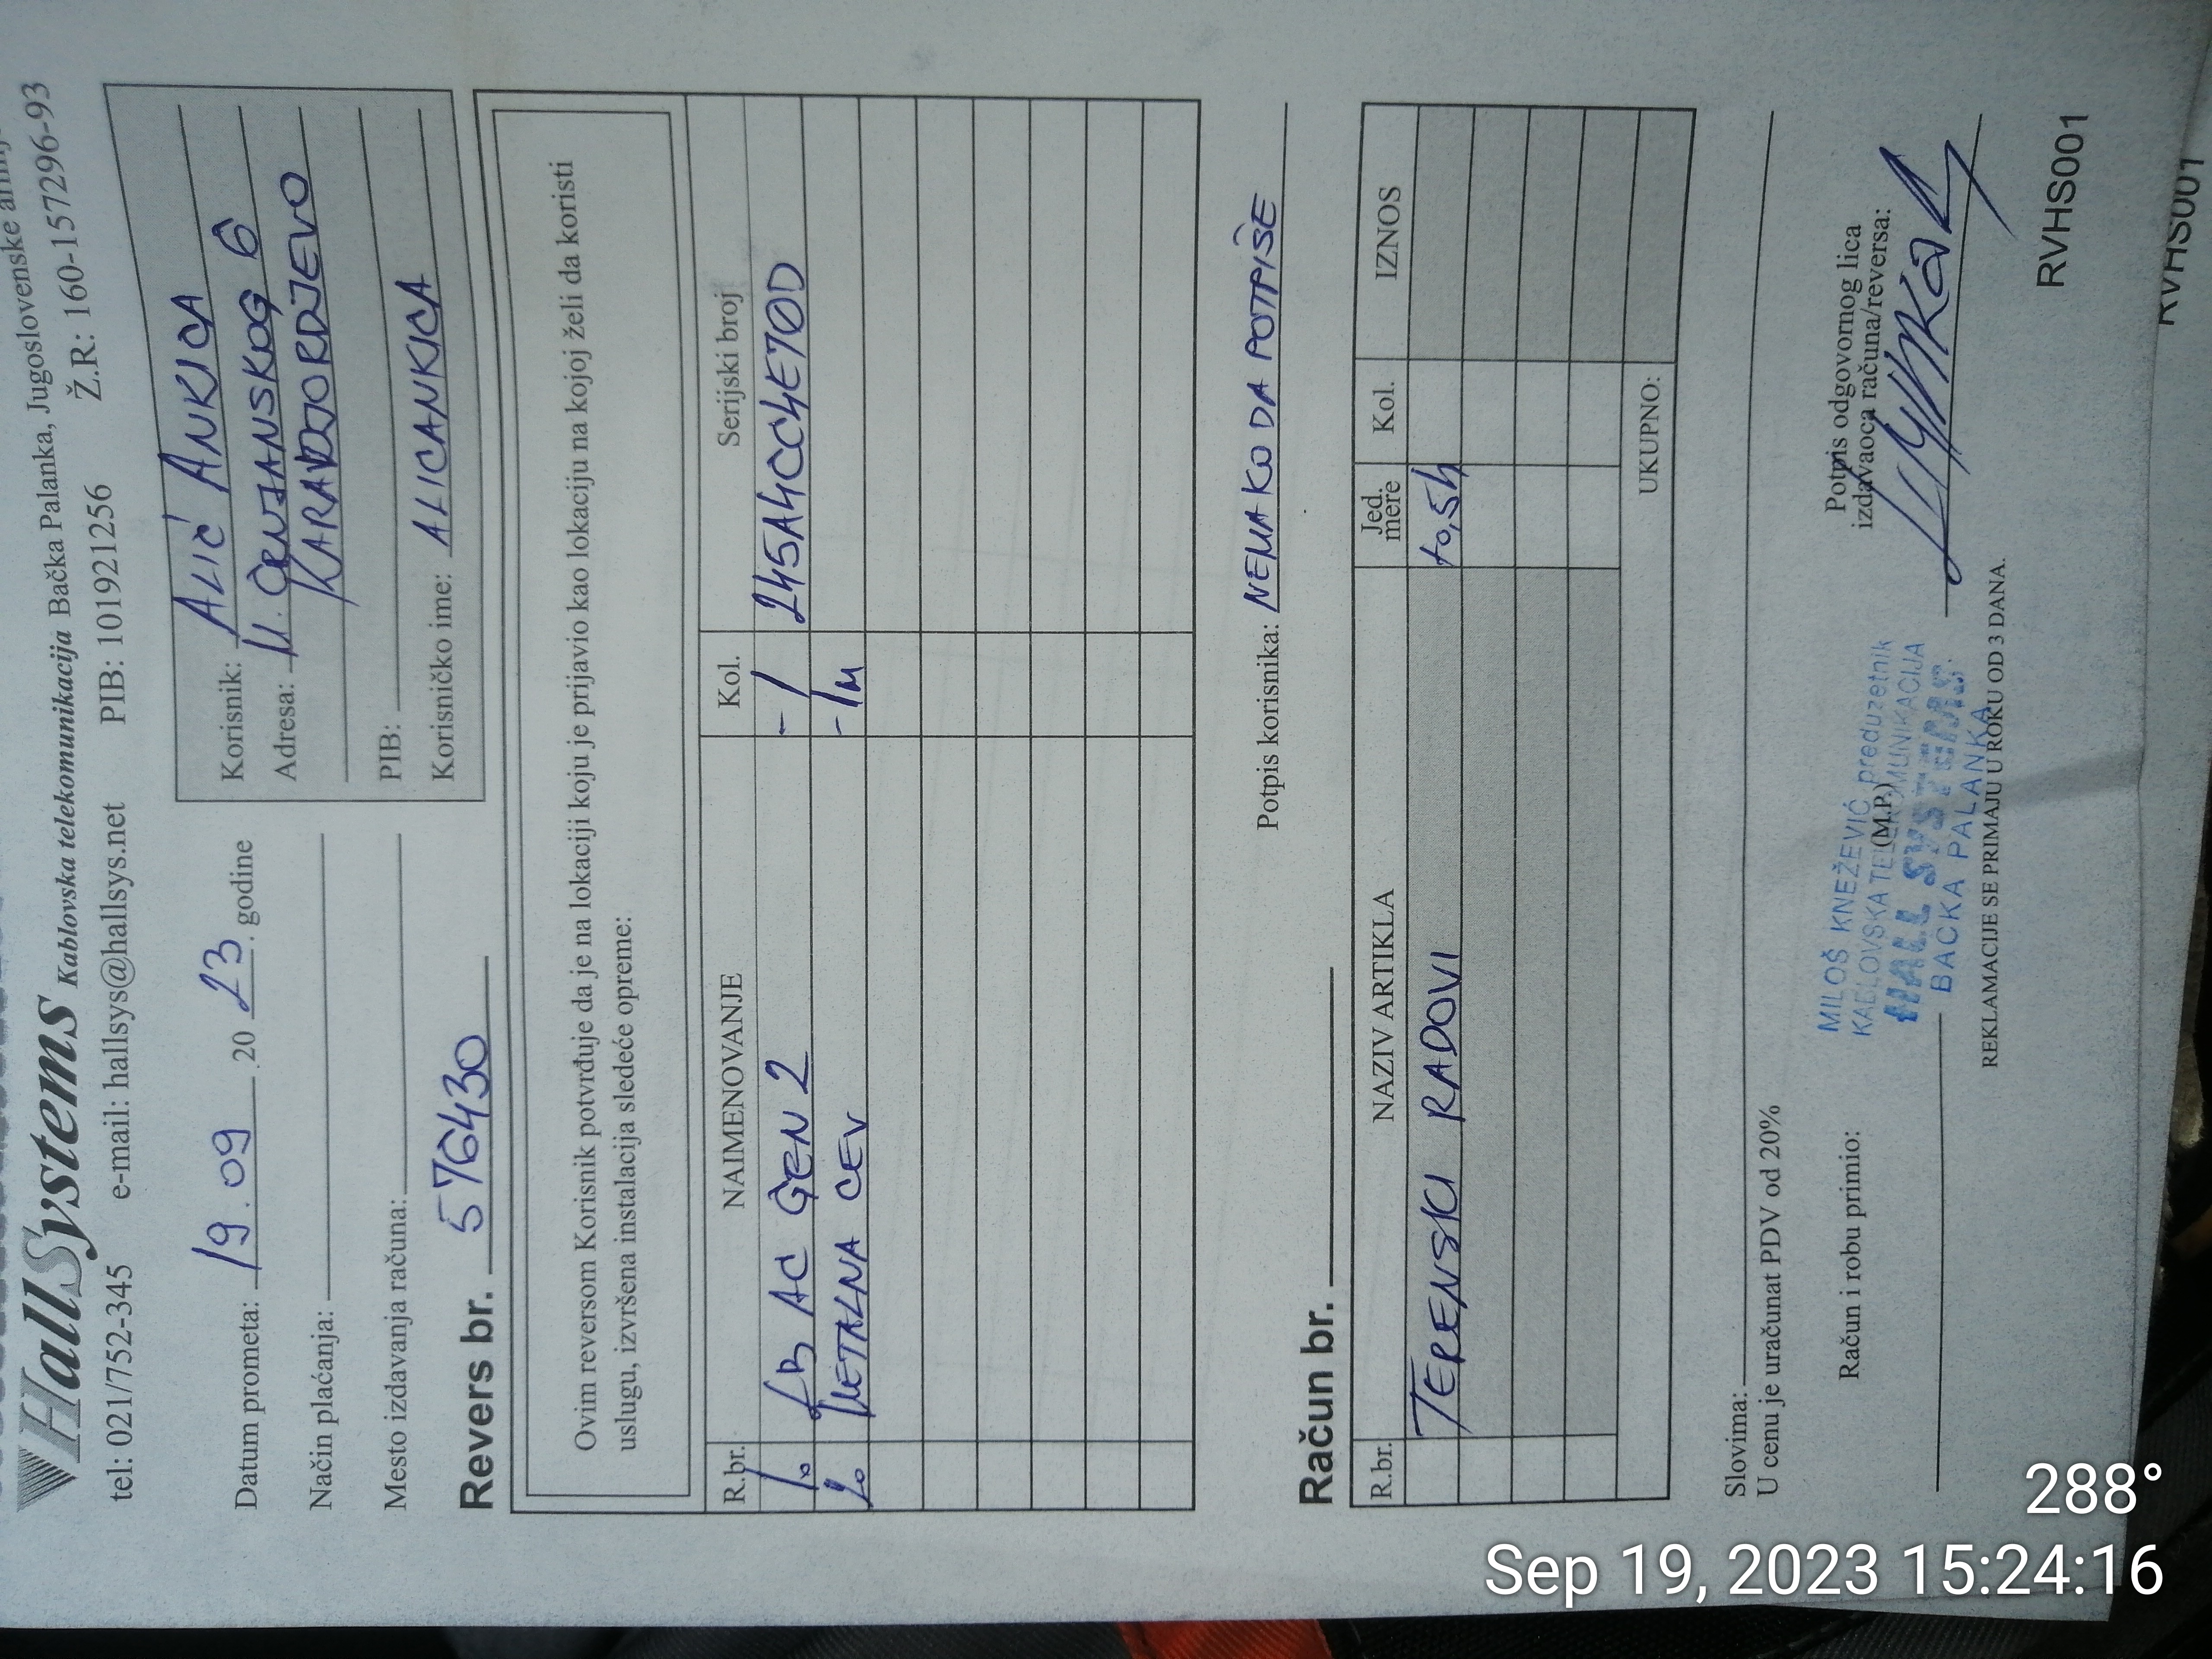 HallSystems Kablovska telekomunikacija Bačka Palanka, Jugoslovenske
tel: 021/752-345 e-mail: hallsys@hallsys.net PIB: 101921256 Ž.R: 160-157296-93
Datum prometa: 19.09 .20 23. godine
Način plaćanja:
Mesto izdavanja računa:
Korisnik: ALIĆ ANKICA
Adresa: M. CRNJANSKOG 6
KARADJORDJEVO
PIB:
Korisničko ime: ALICANKICA
Revers br. 576430
Ovim reversom Korisnik potvrđuje da je na lokaciji koju je prijavio kao lokaciju na kojoj želi da koristi
uslugu, izvršena instalacija sledeće opreme:
R.br. NAIMENOVANJE Kol. Serijski broj
1. LB AC GEN 2 -1 245A4CC4E70D
2. METALNA CEV -1m
Potpis korisnika: NEMA KO DA POTPIŠE
Račun br.
R.br. NAZIV ARTIKLA Jed. mere Kol. IZNOS
TERENSKI RADOVI to,5h
UKUPNO:
Slovima:
U cenu je uračunat PDV od 20%
Račun i robu primio:
(M.P.)
Potpis odgovornog lica
izdavaoca računa/reversa:
MILOŠ KNEŽEVIĆ preduzetnik
KABLOVSKA TELEKOMUNIKACIJA
HALL SYSTEMS
BAČKA PALANKA
REKLAMACIJE SE PRIMAJU U ROKU OD 3 DANA.
RVHS001
RVHS001
288°
Sep 19, 2023 15:24:16